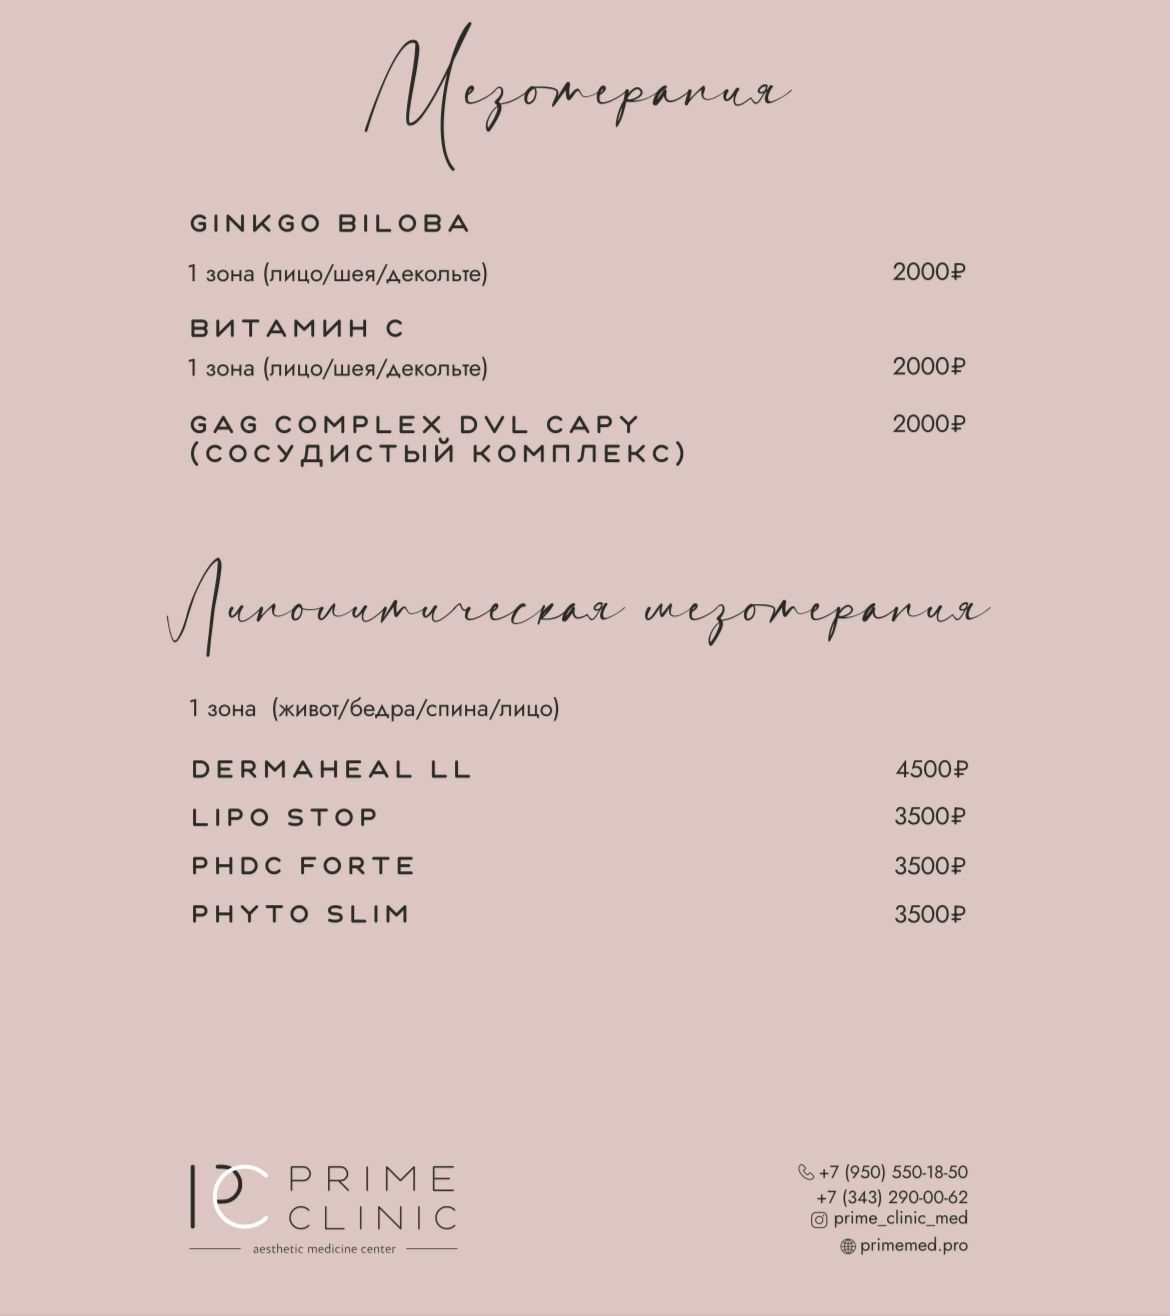 Мезотерапия
GINKGO BILOBA
1 зона (лицо/шея/декольте) 2000₽
ВИТАМИН С
1 зона (лицо/шея/декольте) 2000₽
GAG COMPLEX DVL CAPY 2000₽
(СОСУДИСТЫЙ КОМПЛЕКС)
Липолитическая мезотерапия
1 зона (живот/бедра/спина/лицо)
DERMAHEAL LL 4500₽
LIPO STOP 3500₽
PHDC FORTE 3500₽
PHYTO SLIM 3500₽
PC PRIME CLINIC
aesthetic medicine center
+7 (950) 550-18-50
+7 (343) 290-00-62
prime_clinic_med
primemed.pro